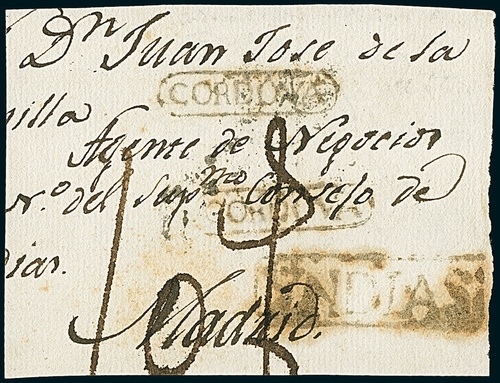 Dn Juan Jose de la
CORDOVA
illa
Agente de Negocios
N.o del Supmo Consejo de
CORDOVA
dias.
INDIAS
Madrid.